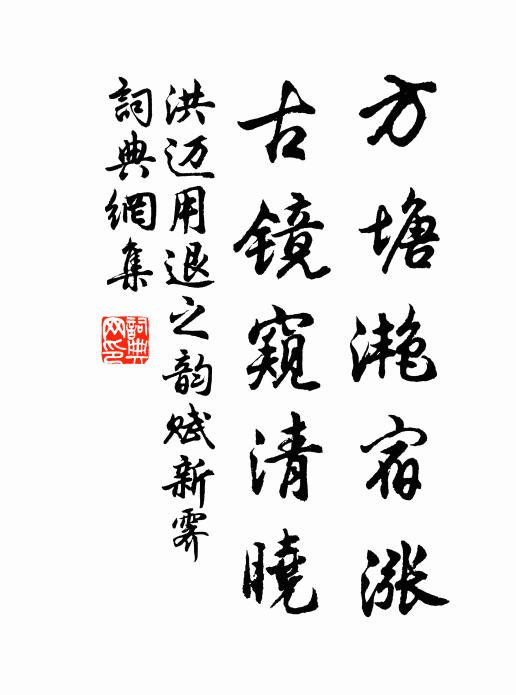 方塘滟宿涨
古镜窥清曉
洪迈用退之韵赋新霁
詞典網集
詞典
网印